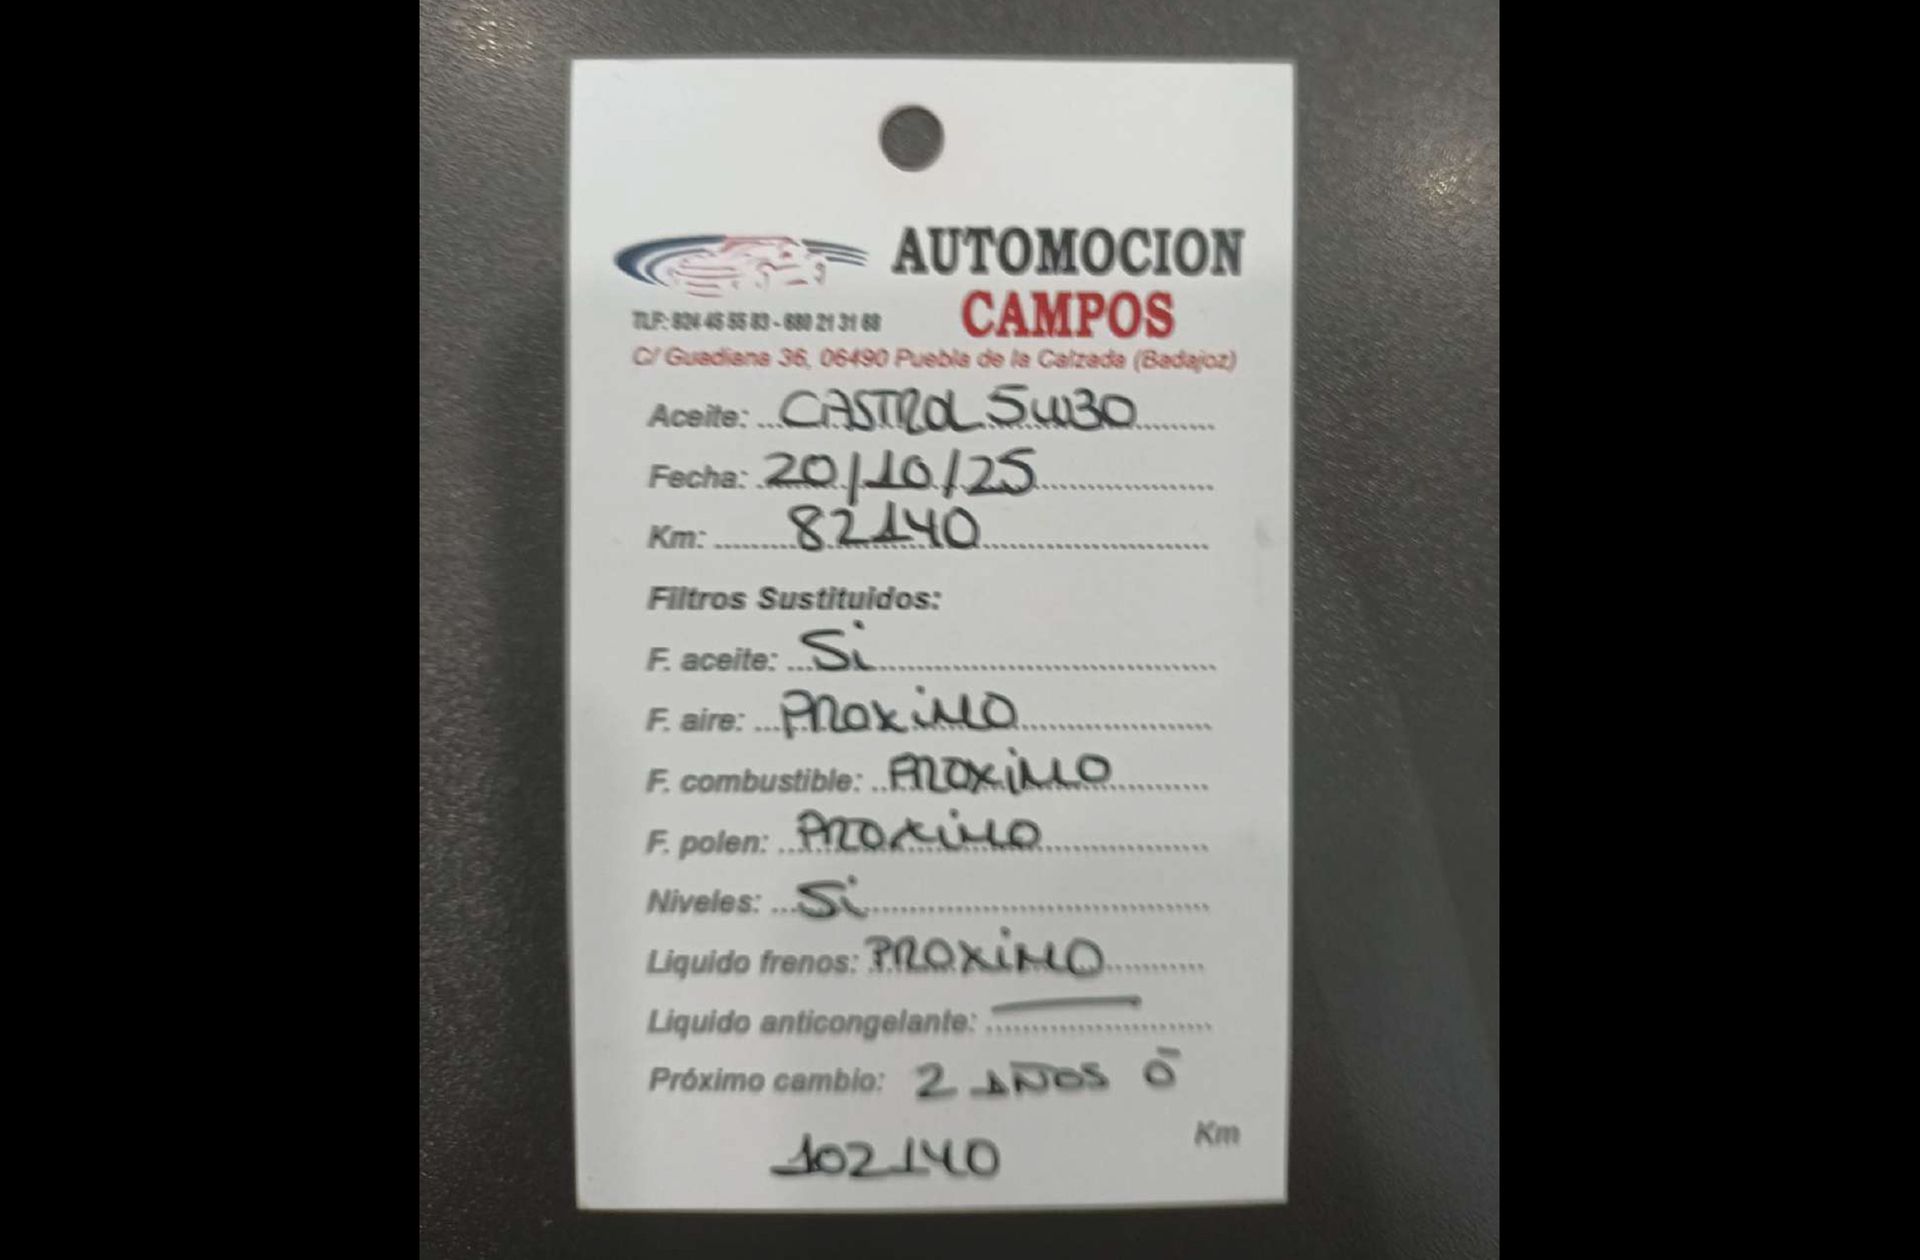 AUTOMOCION
CAMPOS
TLF: 924 45 55 83 - 680 21 31 68
C/ Guadiana 36, 06490 Puebla de la Calzada (Badajoz)
Aceite: CASTROL 5W30
Fecha: 20/10/25
Km: 82140
Filtros Sustituidos:
F. aceite: Si
F. aire: PROXiMO
F. combustible: PROXiMO
F. polen: PROXiMO
Niveles: Si
Liquido frenos: PROXiMO
Liquido anticongelante: —
Próximo cambio: 2 AÑOS Ó
Km
102140